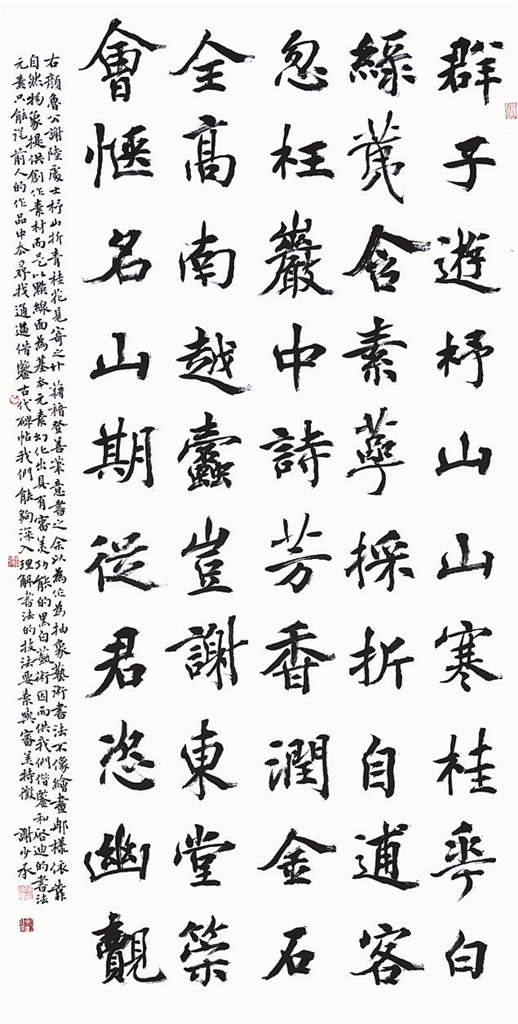 群子遊杼山山寒桂華白
綠荑含素萼採折自逋客
忽枉巖中詩芳香潤金石
全高南越蠹豈謝東堂策
會愜名山期從君恣幽覿
右顔魯公謝陸處士杼山折青桂花見寄之什藉褚登善筆意書之余以為作為抽象藝術書法不像繪畫那樣依靠
自然物象提供創作素材而是以點線面為基本元素幻化出具有審美功能的黑白藝術因而供我們借鑒和啓迪的書法
元素只能從前人的作品中去尋找通過借鑒古代碑帖我們能夠深入理解書法的技法要素與審美特徵 謝少承